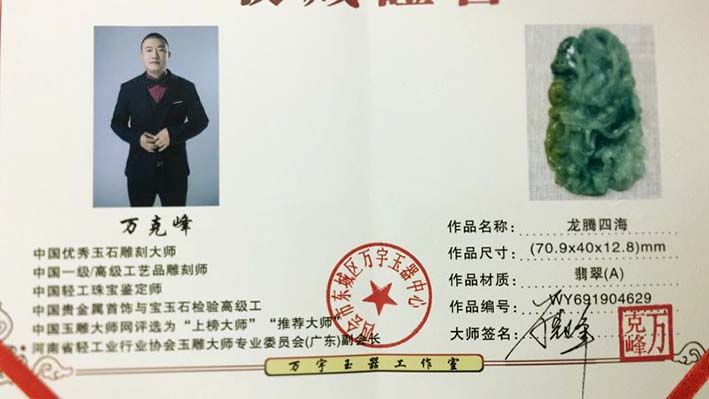 万克峰
中国优秀玉石雕刻大师
中国一级/高级工艺品雕刻师
中国轻工珠宝鉴定师
中国贵金属首饰与宝玉石检验高级工
中国玉雕大师网评选为“上榜大师”“推荐大师”
河南省轻工业行业协会玉雕大师专业委员会(广东)副会长
四会市东城区万字玉器中心
作品名称: 龙腾四海
作品尺寸: (70.9x40x12.8)mm
作品材质: 翡翠(A)
作品编号: WY691904629
大师签名:
万克峰
万字玉器工作室